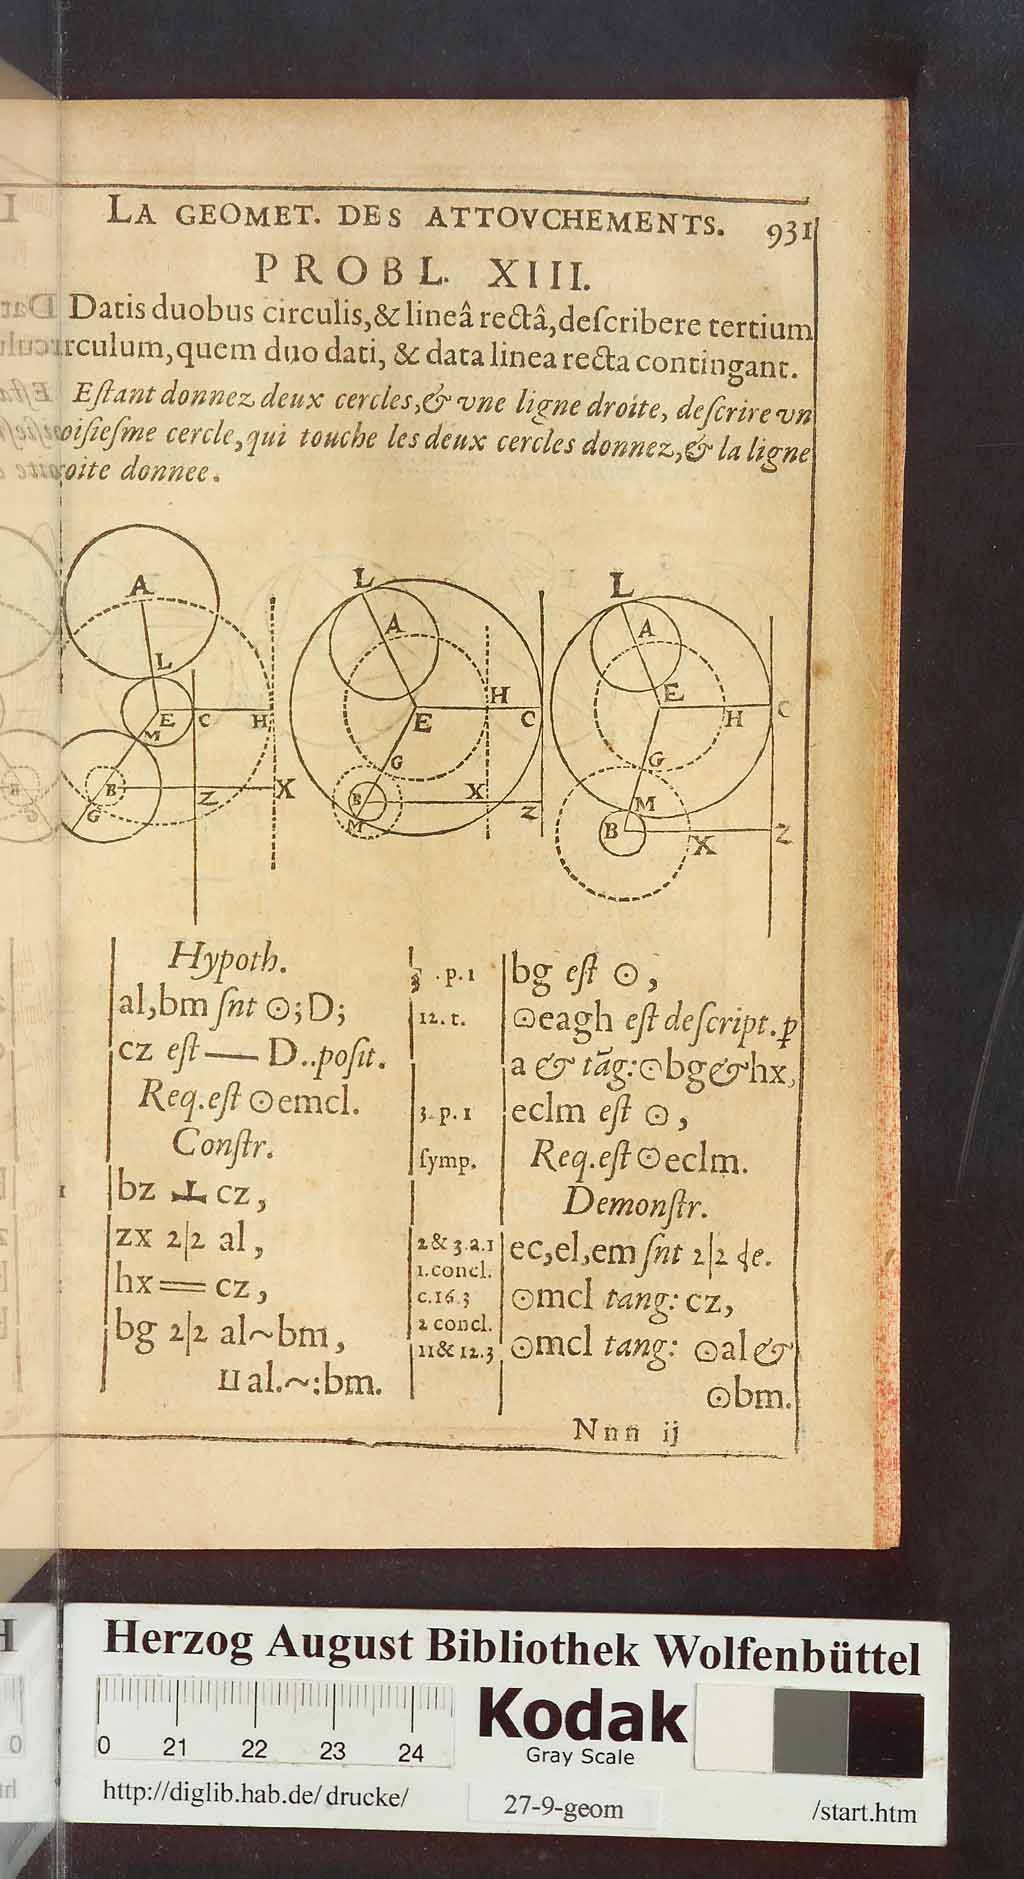 LA GEOMET. DES ATTOVCHEMENTS. 931
PROBL. XIII.
Datis duobus circulis, & lineâ rectâ, describere tertium
rculum, quem duo dati, & data linea recta contingant.
Estant donnez deux cercles, & vne ligne droite, descrire vn
oisiesme cercle, qui touche les deux cercles donnez, & la ligne
oite donnee.
A L E C H M B Z X G
L A H E C G B X M Z
L A E H C G M B X Z
Hypoth.
al, bm snt ⊙; D;
cz est — D..posit.
Req. est ⊙ emcl.
Constr.
bz ⊥ cz,
zx 2|2 al,
hx = cz,
bg 2|2 al ~ bm,
al. ~ : bm.
3 .p.1 bg est ⊙,
12. t. ⊙eagh est descript. p
a & tãg: ⊙bg & hx,
3. p. 1 eclm est ⊙,
symp. Req. est ⊙eclm.
Demonstr.
2 & 3. a. 1 ec, el, em snt 2|2 de.
1. concl.
c. 16. 3 ⊙mcl tang: cz,
2 concl.
11 & 12. 3 ⊙mcl tang: ⊙al &
⊙bm.
Nnn ij
Herzog August Bibliothek Wolfenbüttel
0 21 22 23 24
Kodak
Gray Scale
http://diglib.hab.de/drucke/ 27-9-geom /start.htm